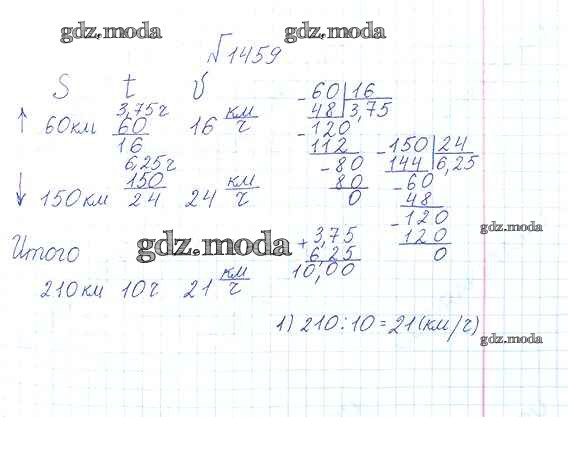 gdz.moda gdz.moda
№1459
S t v
↑ 60 км 3,75 ч 60/16 16 км/ч
↓ 150 км 6,25 ч 150/24 24 км/ч
Итого
210 км 10 ч 21 км/ч
- 60 | 16
48 | 3,75
- 120
112
- 80
80
0
- 150 | 24
144 | 6,25
- 60
48
- 120
120
0
gdz.moda
gdz.moda
+ 3,75
6,25
10,00
1) 210 : 10 = 21 (км/ч)
gdz.moda